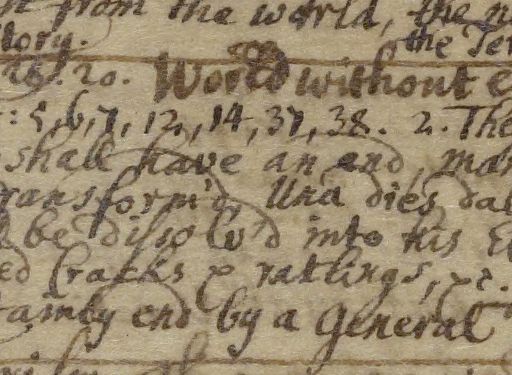 from the world, the
tory. the Ter
28. 20. World without e
: 5, 6, 7, 12, 14, 37, 38. 2. The
shall have an end, mat
ransform'd Una dies dab
be dissolv'd into his El
ed Cracks & ratlings, &c.
tainly end by a General